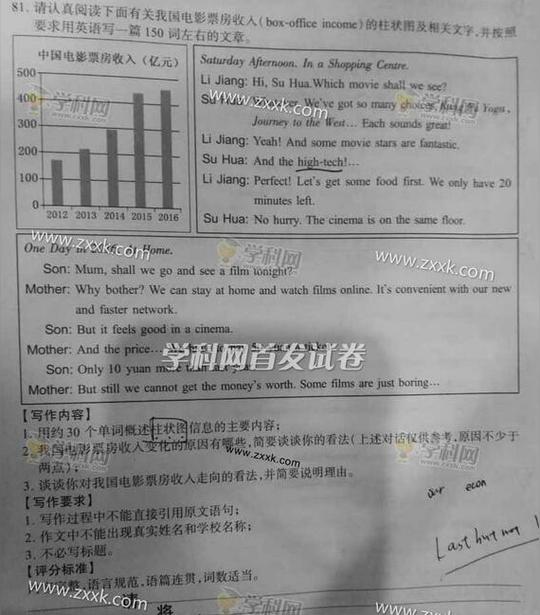 81. 请认真阅读下面有关我国电影票房收入(box-office income)的柱状图及相关文字,并按照
要求用英语写一篇 150 词左右的文章。
中国电影票房收入(亿元)
500
400
300
200
100
0
2012 2013 2014 2015 2016
Saturday Afternoon. In a Shopping Centre.
Li Jiang: Hi, Su Hua. Which movie shall we see?
Su We've got so many choices, Yoga,
Journey to the West… Each sounds great!
Li Jiang: Yeah! And some movie stars are fantastic.
Su Hua: And the high-tech!…
Li Jiang: Perfect! Let's get some food first. We only have 20
minutes left.
Su Hua: No hurry. The cinema is on the same floor.
One Day in Home.
Son: Mum, shall we go and see a film tonight?
Mother: Why bother? We can stay at home and watch films online. It's convenient with our new
and faster network.
Son: But it feels good in a cinema.
Mother: And the price…
Son: Only 10 yuan
Mother: But still we cannot get the money's worth. Some films are just boring…
【写作内容】
1. 用约 30 个单词概述柱状图信息的主要内容;
2. 我国电影票房收入变化的原因有哪些,简要谈谈你的看法(上述对话仅供参考,原因不少于
两点);
3. 谈谈你对我国电影票房收入走向的看法,并简要说明理由。
【写作要求】
1. 写作过程中不能直接引用原文语句;
2. 作文中不能出现真实姓名和学校名称;
3. 不必写标题。
【评分标准】
完整,语言规范,语篇连贯,词数适当。
学科网
www.zxxk.com
学科网
www.zxxk.com
www.zxxk.com
学科网
www.zxxk.com
学科网首发试卷
www.zxxk.com
www.zxxk.com
学科网
our econ
Last but not